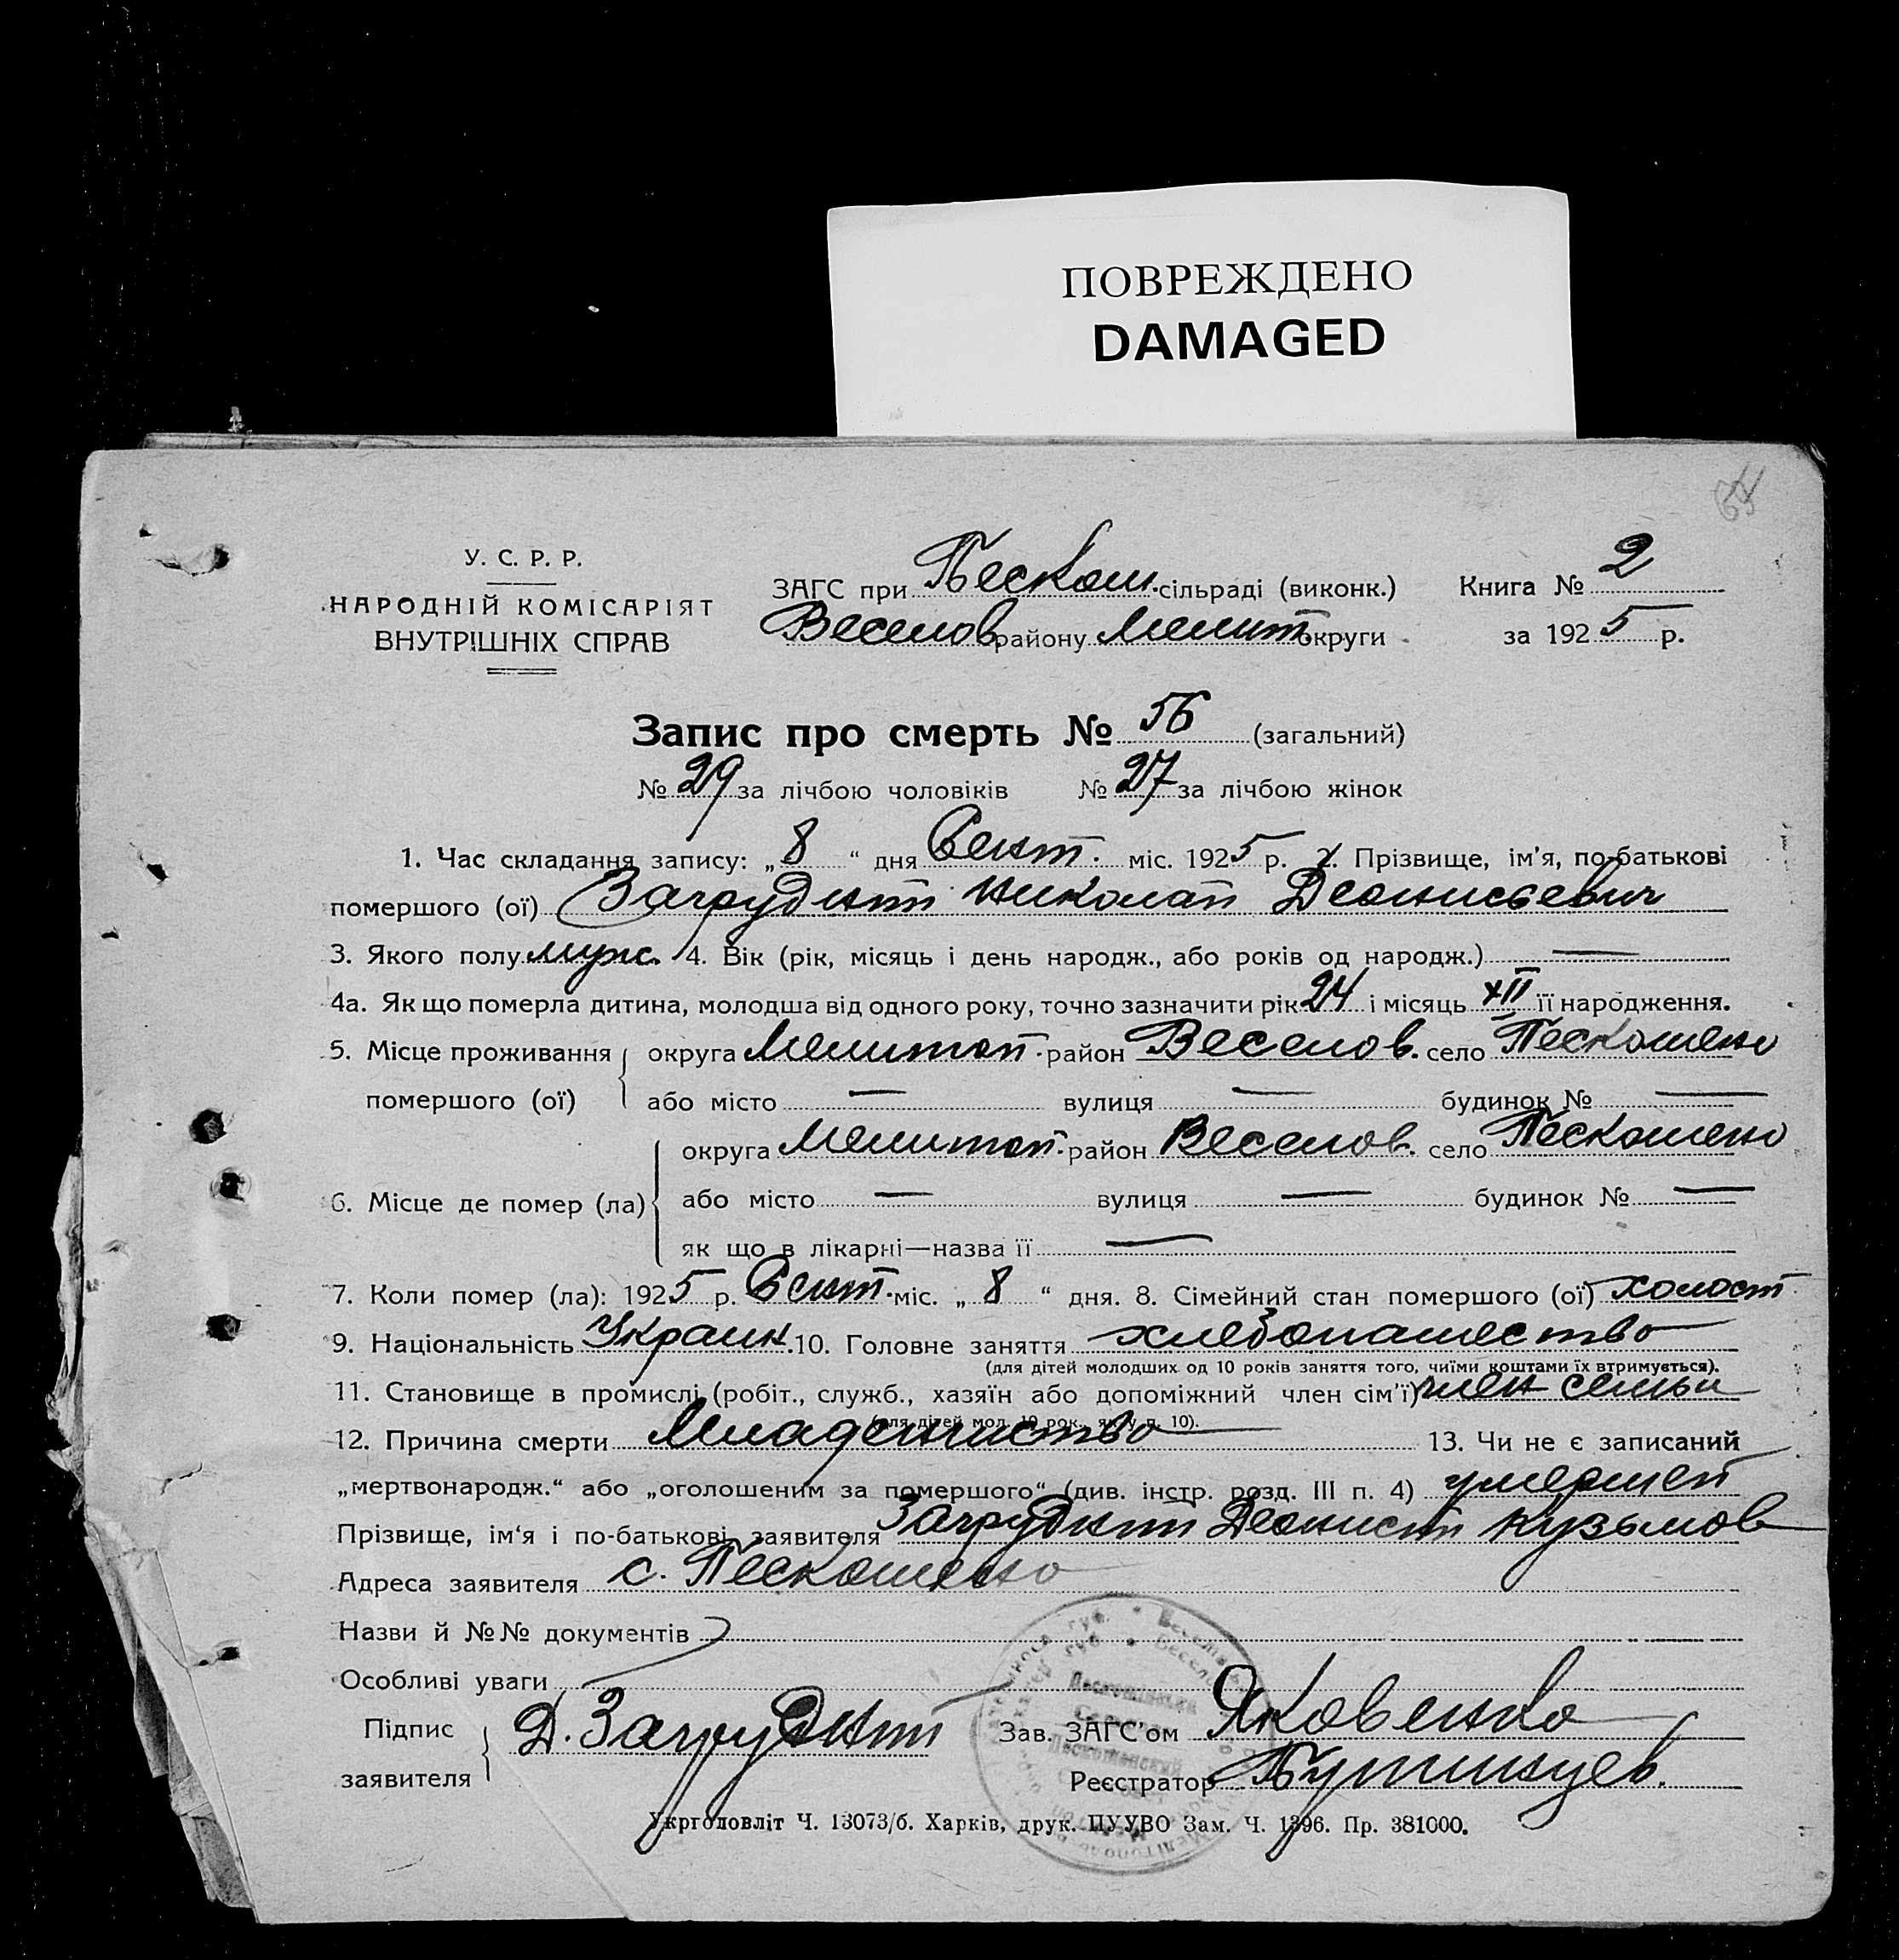 ПОВРЕЖДЕНО
DAMAGED
64
У. С. Р. Р.
НАРОДНІЙ КОМІСАРІЯТ
ВНУТРІШНІХ СПРАВ
ЗАГС при Пескош. сільраді (виконк.) Книга № 2
Веселов району Мелит. округи за 1925 р.
Запис про смерть № 56 (загальний)
№ 29 за лічбою чоловіків № 27 за лічбою жінок
1. Час складання запису: „8“ дня Сент. міс. 1925 р. 2. Прізвище, ім'я, по-батькові
помершого (ої) Загруднт Николат Деонисьевич
3. Якого полу муж. 4. Вік (рік, місяць і день народж., або років од народж.) —
4а. Як що померла дитина, молодша від одного року, точно зазначити рік 24 і місяць XII її народження.
5. Місце проживання округа Мелитоп. район Веселов. село Пескошено
помершого (ої) або місто — вулиця — будинок № —
округа Мелитоп. район Веселов. село Пескошено
6. Місце де помер (ла) або місто — вулиця — будинок № —
як що в лікарні—назва її —
7. Коли помер (ла): 1925 р. Сент. міс. „8“ дня. 8. Сімейний стан помершого (ої) холост
9. Національність Украин. 10. Головне заняття хлебопашество
(для дітей молодших од 10 років заняття того, чиїми коштами їх втримується).
11. Становище в промислі (робіт., служб., хазяїн або допоміжний член сім'ї) член семьи
(для дітей мол. 10 рок., як у п. 10).
12. Причина смерти Младенчиство 13. Чи не є записаний
„мертвонародж.“ або „оголошеним за помершого“ (див. інстр. розд. III п. 4) умершей
Прізвище, ім'я і по-батькові заявителя Загруднт Деонист Кузьмов
Адреса заявителя с. Пескошено
Назви й №№ документів
Особливі уваги
Підпис заявителя Д. Загруднт Зав. ЗАГС'ом Яковенко
Реєстратор
Укрголовліт Ч. 13073/б. Харків, друк. ПУУВО Зам. Ч. 1396. Пр. 381000.